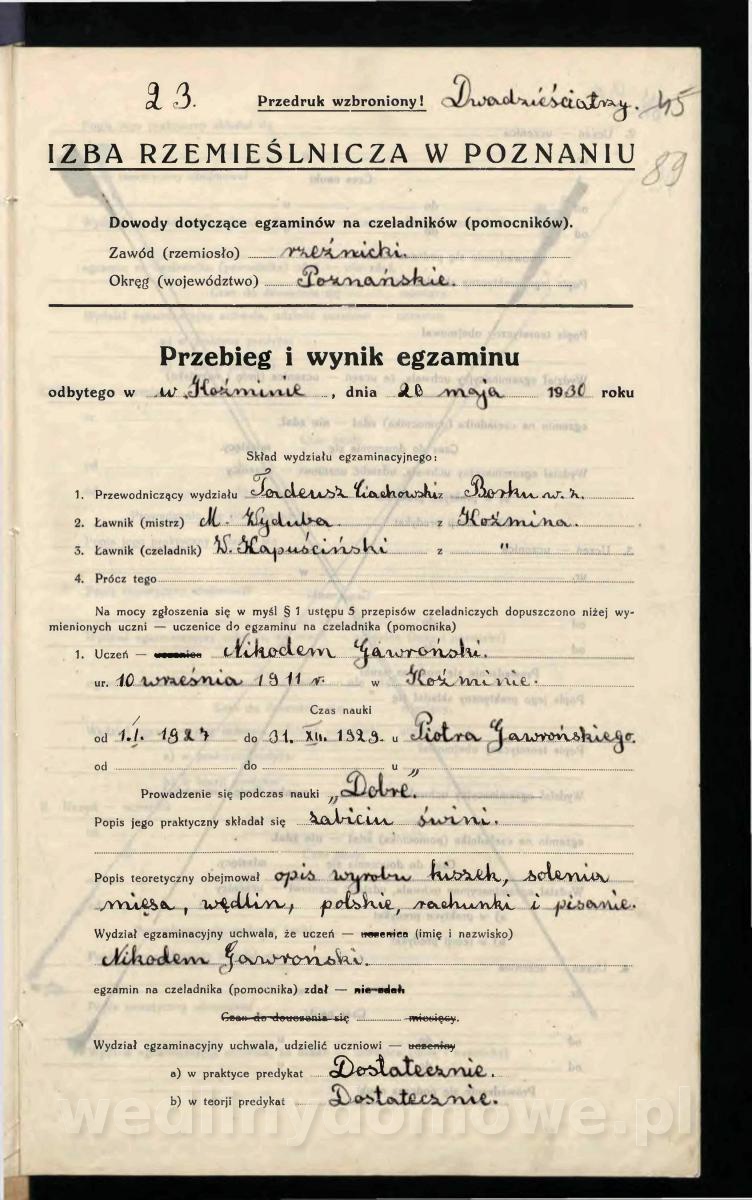 23. Przedruk wzbroniony! Dwadzieściatrzy. 45
89
IZBA RZEMIEŚLNICZA W POZNANIU
Dowody dotyczące egzaminów na czeladników (pomocników).
Zawód (rzemiosło) rzeźnicki.
Okręg (województwo) Poznańskie.
Przebieg i wynik egzaminu
odbytego w w. Koźminie, dnia 20 maja 1930 roku
Skład wydziału egzaminacyjnego:
1. Przewodniczący wydziału Tadeusz Ciachowski z Borku w. z.
2. Ławnik (mistrz) M. Wyduba z Koźmina.
3. Ławnik (czeladnik) W. Kapuściński z "
4. Prócz tego
Na mocy zgłoszenia się w myśl § 1 ustępu 5 przepisów czeladniczych dopuszczono niżej wy-
mienionych uczni — uczenice do egzaminu na czeladnika (pomocnika)
1. Uczeń — uczenica Nikodem Gawroński.
ur. 10 września 1911 r. w Koźminie.
Czas nauki
od 1.I. 1927 do 31. XII. 1929. u Piotra Gawrońskiego.
od do u "
Prowadzenie się podczas nauki „Dobre."
Popis jego praktyczny składał się zabiciu świni.
Popis teoretyczny obejmował opis wyrobu kiszek, solenia
mięsa, wędlin, polskie, rachunki i pisanie.
Wydział egzaminacyjny uchwala, że uczeń — uczenica (imię i nazwisko)
Nikodem Gawroński.
egzamin na czeladnika (pomocnika) zdał — nie zdał.
Czas do douczenia się miesięcy.
Wydział egzaminacyjny uchwala, udzielić uczniowi — uczeniny
a) w praktyce predykat Dostatecznie.
b) w teorji predykat Dostatecznie.
wedlinydomowe.pl